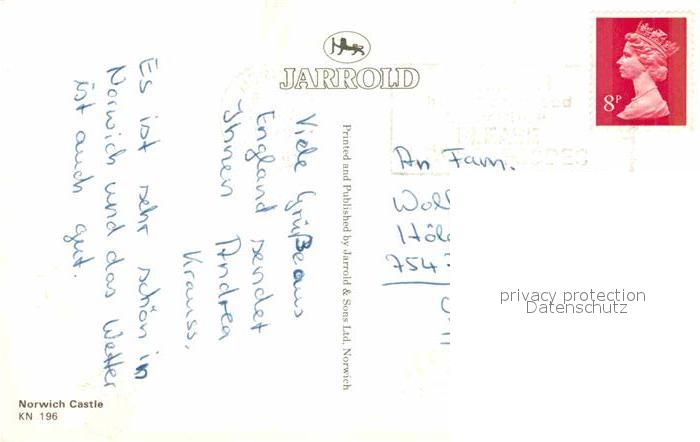 JARROLD
8P
Es ist sehr schön in
Norwich und das Wetter
ist auch gut.
Viele Grüße aus
England sendet
Ihnen Andrea
Krauss.
Printed and Published by Jarrold & Sons Ltd. Norwich
An Fam.
Wol
Höl
754
privacy protection
Datenschutz
Norwich Castle
KN 196